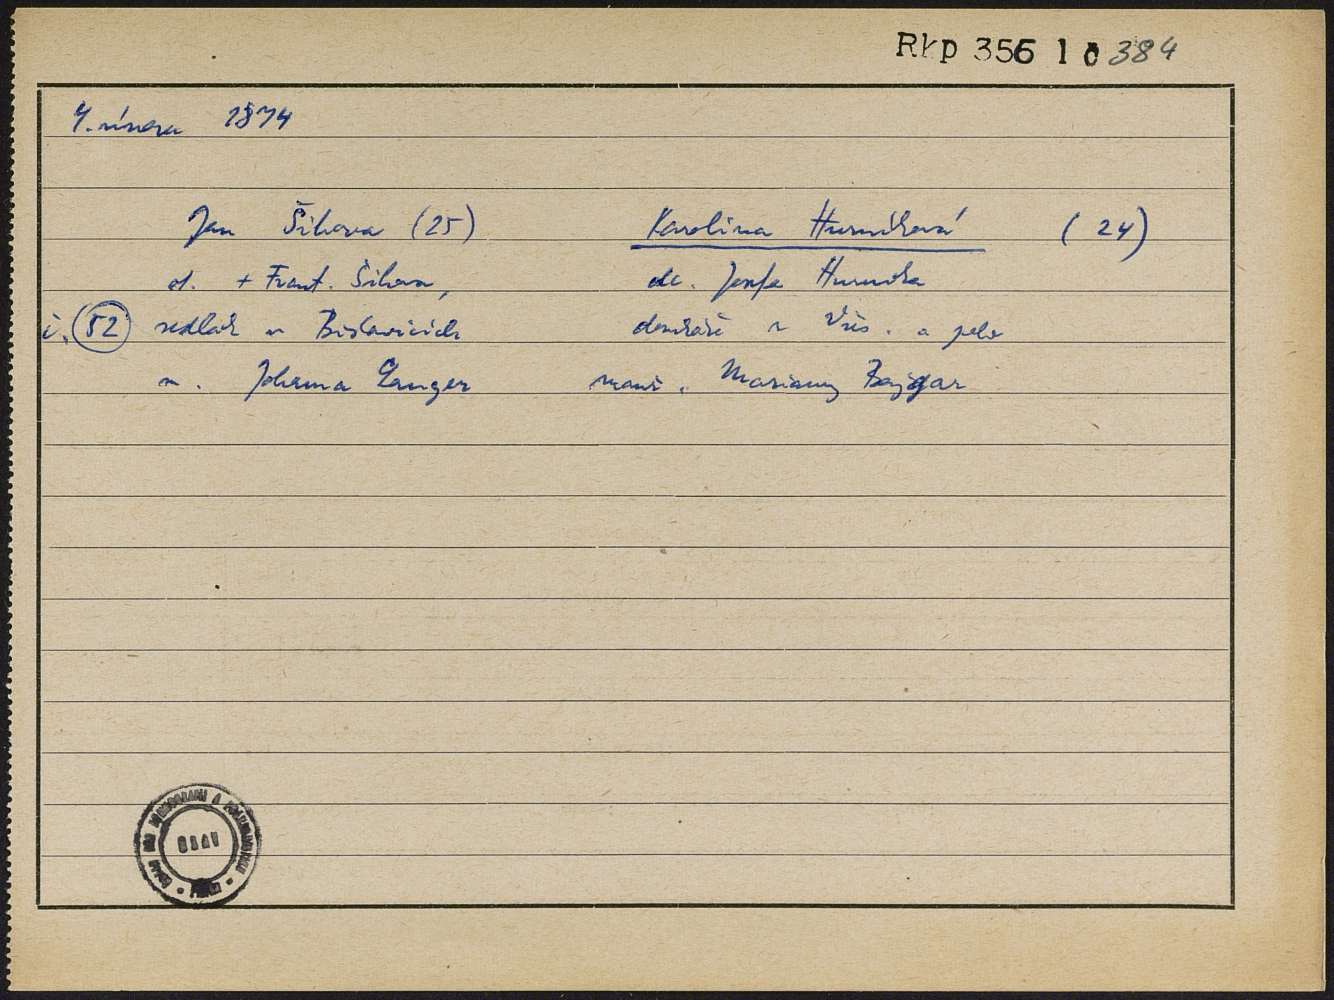 Rkp 356 1 0 384
4. února 1874
Jan Šikora (25) Karolina Hurníková (24)
s. + Frant. Šikora, dc. Josefa Hurníka
č. 52 sedlák v Bislavicích domkáře v a jeho
m. Johanna Langer manž. Marianny Bajgar